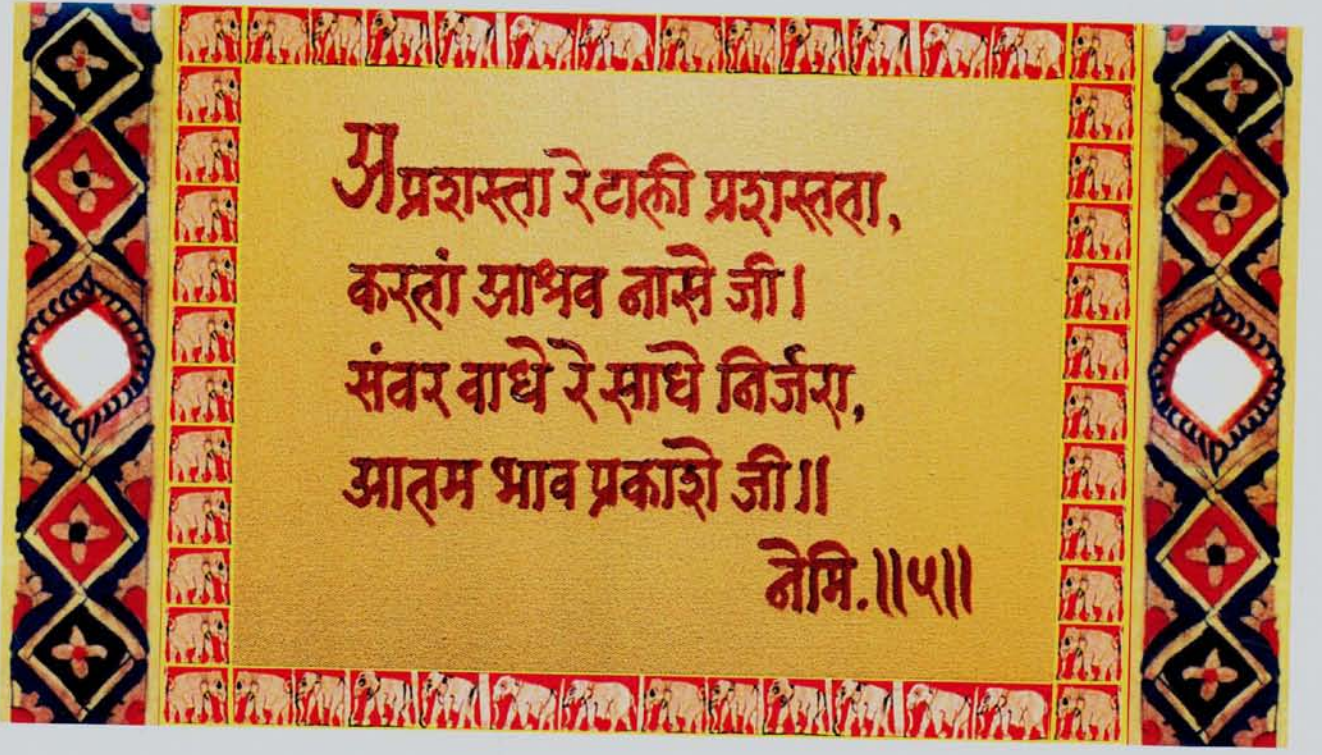 अप्रशस्ता रे टाली प्रशस्तता,
करतां आश्रव नासे जी।
संवर वाधे रे साधे निर्जरा,
आतम भाव प्रकाशे जी॥
नेमि.॥५॥